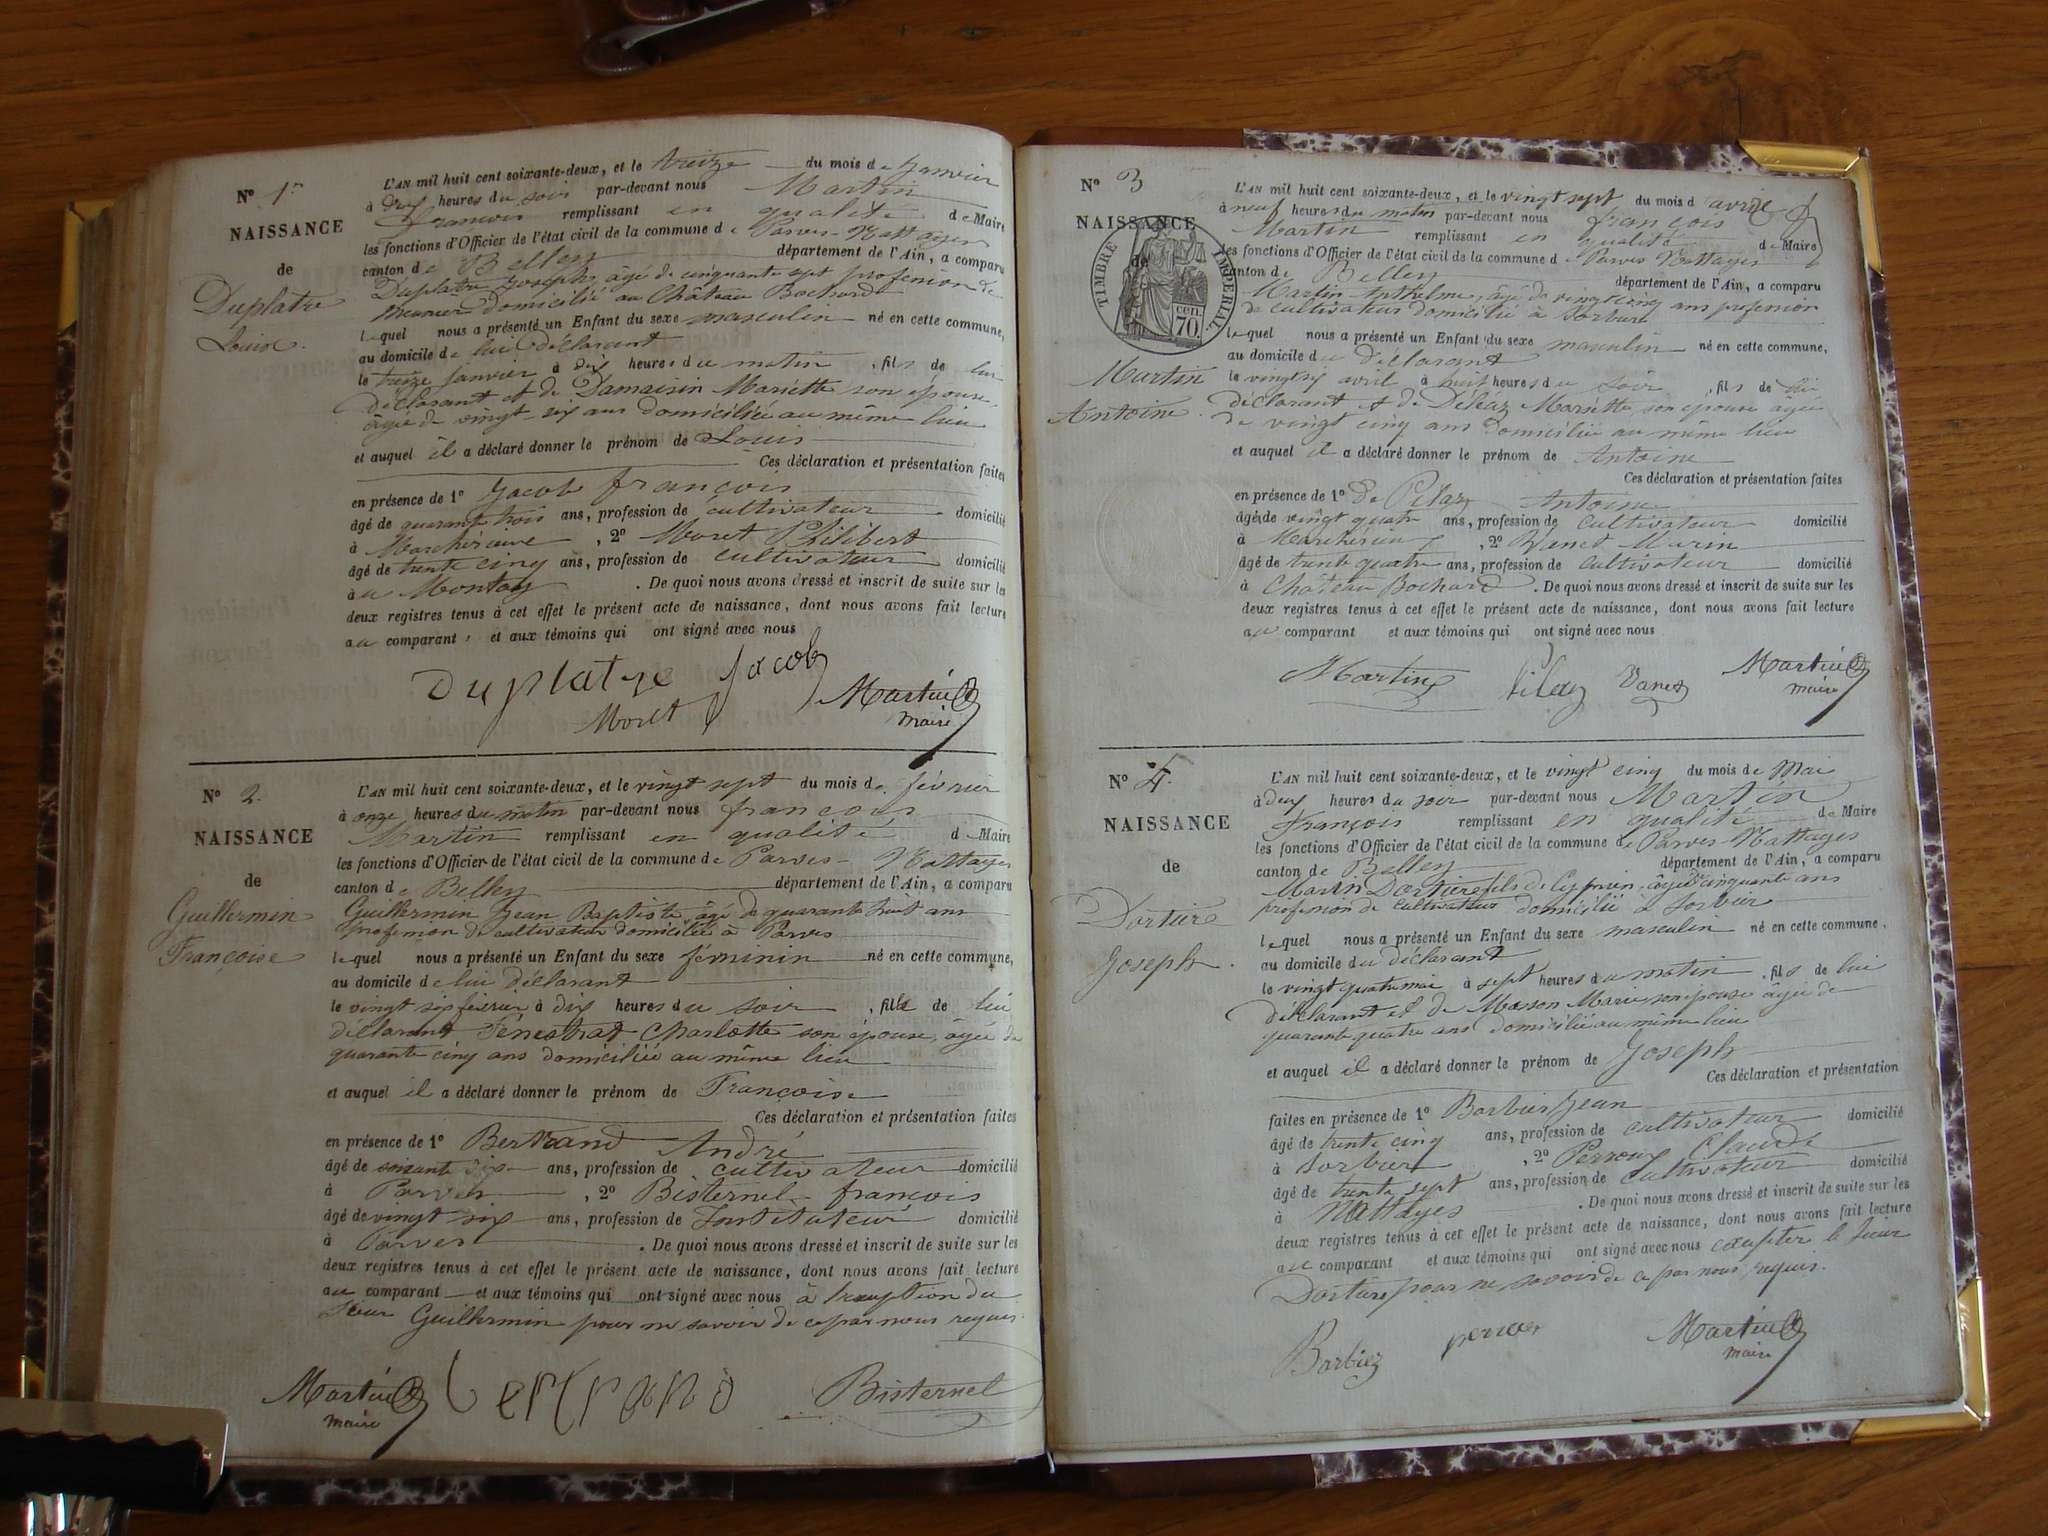 N° 1er
NAISSANCE
de
Duplatre
Louis.
L'AN mil huit cent soixante-deux, et le treize du mois de Janvier
à deux heures du soir par-devant nous Martin
François remplissant en qualité de Maire
les fonctions d'Officier de l'état civil de la commune de Parves-Nattages
canton de Belley département de l'Ain, a comparu
Duplatre Joseph, âgé de cinquante sept profession de
meunier domicilié au Château Bochard
lequel nous a présenté un Enfant du sexe masculin né en cette commune,
au domicile de lui déclarant
le treize Janvier à dix heures du matin, fils de lui
déclarant et de Damaisin Mariette son épouse,
âgée de vingt-six ans domiciliée au même lieu
et auquel il a déclaré donner le prénom de Louis
Ces déclaration et présentation faites
en présence de 1° Jacob françois
âgé de quarante trois ans, profession de cultivateur domicilié
à , 2° Moret Philibert
âgé de trente cinq ans, profession de cultivateur domicilié
au . De quoi nous avons dressé et inscrit de suite sur les
deux registres tenus à cet effet le présent acte de naissance, dont nous avons fait lecture
au comparant, et aux témoins qui ont signé avec nous
Duplatre Jacob
Moret Martin
maire
N° 2.
NAISSANCE
de
Guillermin
Françoise
L'AN mil huit cent soixante-deux, et le vingt sept du mois de février
à onze heures du matin par-devant nous françois
Martin remplissant en qualité de Maire
les fonctions d'Officier de l'état civil de la commune de Parves-Nattages
canton de Belley département de l'Ain, a comparu
Guillermin Jean Baptiste, âgé de quarante huit ans
profession de cultivateur domicilié à Parves
lequel nous a présenté un Enfant du sexe féminin né en cette commune,
au domicile de lui déclarant
le vingt six février à dix heures du soir, fille de lui
déclarant Fenestrat Charlotte son épouse, âgée de
quarante cinq ans domiciliée au même lieu
et auquel il a déclaré donner le prénom de Françoise
Ces déclaration et présentation faites
en présence de 1° Bertrand André
âgé de soixante dix ans, profession de cultivateur domicilié
à Parves, 2° Bisternel françois
âgé de vingt six ans, profession de Instituteur domicilié
à Parves. De quoi nous avons dressé et inscrit de suite sur les
deux registres tenus à cet effet le présent acte de naissance, dont nous avons fait lecture
au comparant et aux témoins qui ont signé avec nous à du
Sieur Guillermin pour ne savoir de ce par nous requis.
Martin Bertrand Bisternel
maire
N° 3
NAISSANCE
de
TIMBRE IMPERIAL
70 cen.
Martin
Antoine.
L'AN mil huit cent soixante-deux, et le vingt sept du mois d avril
à neuf heures du matin par-devant nous françois
Martin remplissant en qualité de Maire
les fonctions d'Officier de l'état civil de la commune de Parves Nattages
canton de Belley département de l'Ain, a comparu
Martin Anthelme, âgé de vingt cinq ans profession
de cultivateur domicilié à Sorbier
lequel nous a présenté un Enfant du sexe masculin né en cette commune,
au domicile du déclarant
le vingt six avril à huit heures du soir, fils de lui
déclarant et de Mariette son épouse âgée
de vingt cinq ans domiciliée au même lieu
et auquel il a déclaré donner le prénom de Antoine
Ces déclaration et présentation faites
en présence de 1° Antoine
âgé de vingt quatre ans, profession de cultivateur domicilié
à , 2° Vanet Marin
âgé de trente quatre ans, profession de cultivateur domicilié
à Château Bochard. De quoi nous avons dressé et inscrit de suite sur les
deux registres tenus à cet effet le présent acte de naissance, dont nous avons fait lecture
au comparant et aux témoins qui ont signé avec nous
Martin Martin
maire
N° 4.
NAISSANCE
de
Dortier
Joseph.
L'AN mil huit cent soixante-deux, et le vingt cinq du mois de Mai
à deux heures du soir par-devant nous Martin
François remplissant en qualité de Maire
les fonctions d'Officier de l'état civil de la commune de Parves-Nattages
canton de Belley département de l'Ain, a comparu
Martin Dortier fils de Cyprien, âgé de cinquante ans
profession de cultivateur domicilié à Sorbier
lequel nous a présenté un Enfant du sexe masculin né en cette commune,
au domicile du déclarant
le vingt quatre mai à sept heures du matin, fils de lui
déclarant et de Masson Marie son épouse âgée de
quarante quatre ans domiciliée au même lieu
et auquel il a déclaré donner le prénom de Joseph
Ces déclaration et présentation
faites en présence de 1° Barbier Jean
âgé de trente cinq ans, profession de cultivateur domicilié
à Sorbier, 2° Perroux Claude
âgé de trente sept ans, profession de cultivateur domicilié
à Nattages. De quoi nous avons dressé et inscrit de suite sur les
deux registres tenus à cet effet le présent acte de naissance, dont nous avons fait lecture
au comparant et aux témoins qui ont signé avec nous le sieur
pour ne savoir de ce par nous requis.
Barbier Martin
maire